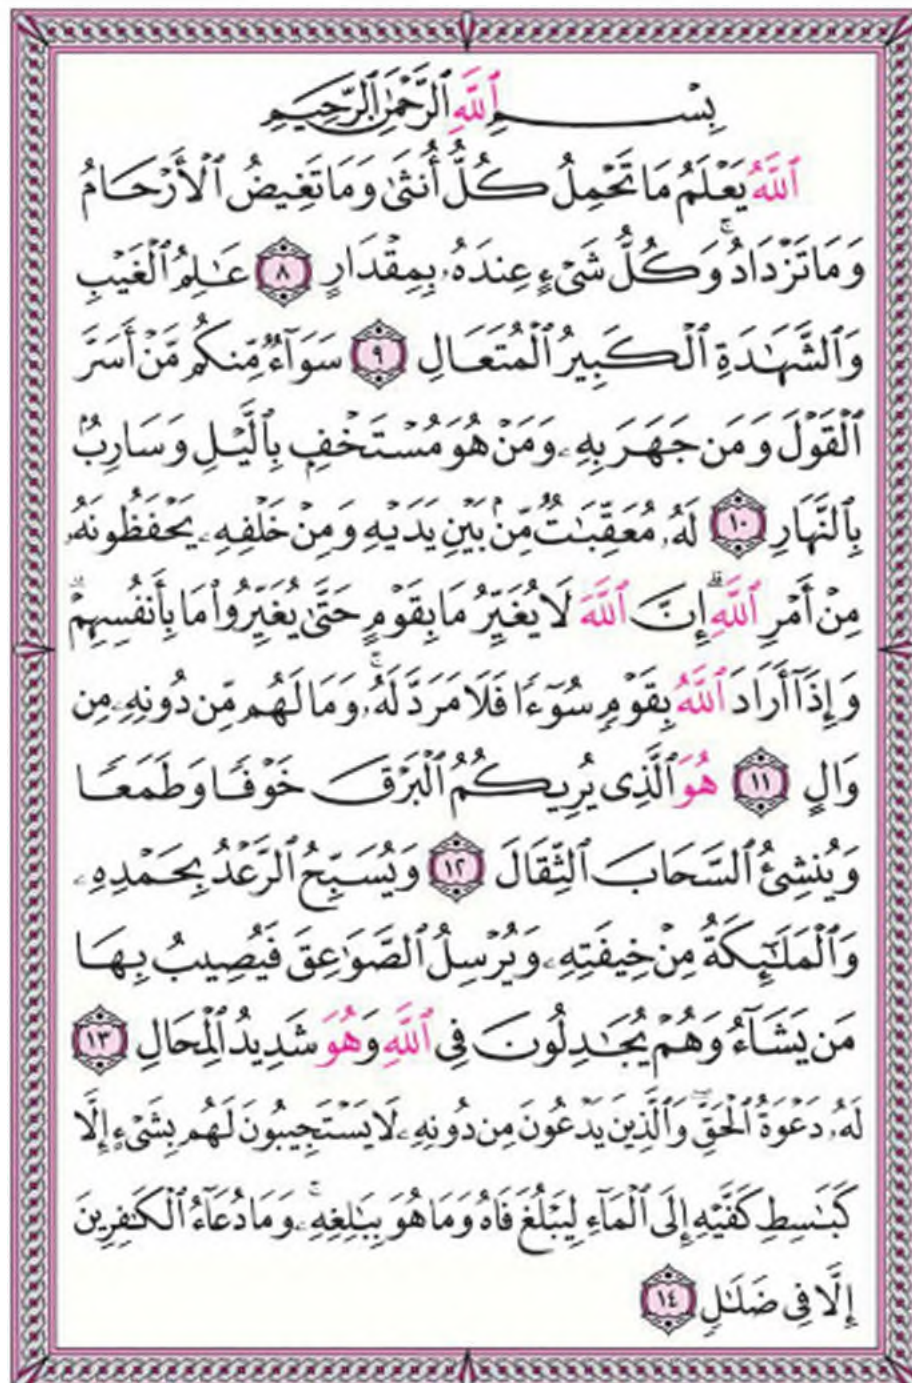 بِسْمِ ٱللَّهِ ٱلرَّحْمَٰنِ ٱلرَّحِيمِ
ٱللَّهُ يَعْلَمُ مَا تَحْمِلُ كُلُّ أُنثَىٰ وَمَا تَغِيضُ ٱلْأَرْحَامُ
وَمَا تَزْدَادُ ۚ وَكُلُّ شَىْءٍ عِندَهُۥ بِمِقْدَارٍ ٨ عَـٰلِمُ ٱلْغَيْبِ
وَٱلشَّهَـٰدَةِ ٱلْكَبِيرُ ٱلْمُتَعَالِ ٩ سَوَآءٌ مِّنكُم مَّنْ أَسَرَّ
ٱلْقَوْلَ وَمَن جَهَرَ بِهِۦ وَمَنْ هُوَ مُسْتَخْفٍۭ بِٱلَّيْلِ وَسَارِبٌۢ
بِٱلنَّهَارِ ١٠ لَهُۥ مُعَقِّبَـٰتٌ مِّنۢ بَيْنِ يَدَيْهِ وَمِنْ خَلْفِهِۦ يَحْفَظُونَهُۥ
مِنْ أَمْرِ ٱللَّهِ ۗ إِنَّ ٱللَّهَ لَا يُغَيِّرُ مَا بِقَوْمٍ حَتَّىٰ يُغَيِّرُوا۟ مَا بِأَنفُسِهِمْ ۗ
وَإِذَآ أَرَادَ ٱللَّهُ بِقَوْمٍ سُوٓءًا فَلَا مَرَدَّ لَهُۥ ۚ وَمَا لَهُم مِّن دُونِهِۦ مِن
وَالٍ ١١ هُوَ ٱلَّذِى يُرِيكُمُ ٱلْبَرْقَ خَوْفًا وَطَمَعًا
وَيُنشِئُ ٱلسَّحَابَ ٱلثِّقَالَ ١٢ وَيُسَبِّحُ ٱلرَّعْدُ بِحَمْدِهِۦ
وَٱلْمَلَـٰٓئِكَةُ مِنْ خِيفَتِهِۦ وَيُرْسِلُ ٱلصَّوَٰعِقَ فَيُصِيبُ بِهَا
مَن يَشَآءُ وَهُمْ يُجَـٰدِلُونَ فِى ٱللَّهِ وَهُوَ شَدِيدُ ٱلْمِحَالِ ١٣
لَهُۥ دَعْوَةُ ٱلْحَقِّ ۖ وَٱلَّذِينَ يَدْعُونَ مِن دُونِهِۦ لَا يَسْتَجِيبُونَ لَهُم بِشَىْءٍ إِلَّا
كَبَـٰسِطِ كَفَّيْهِ إِلَى ٱلْمَآءِ لِيَبْلُغَ فَاهُ وَمَا هُوَ بِبَـٰلِغِهِۦ ۚ وَمَا دُعَآءُ ٱلْكَـٰفِرِينَ
إِلَّا فِى ضَلَـٰلٍ ١٤